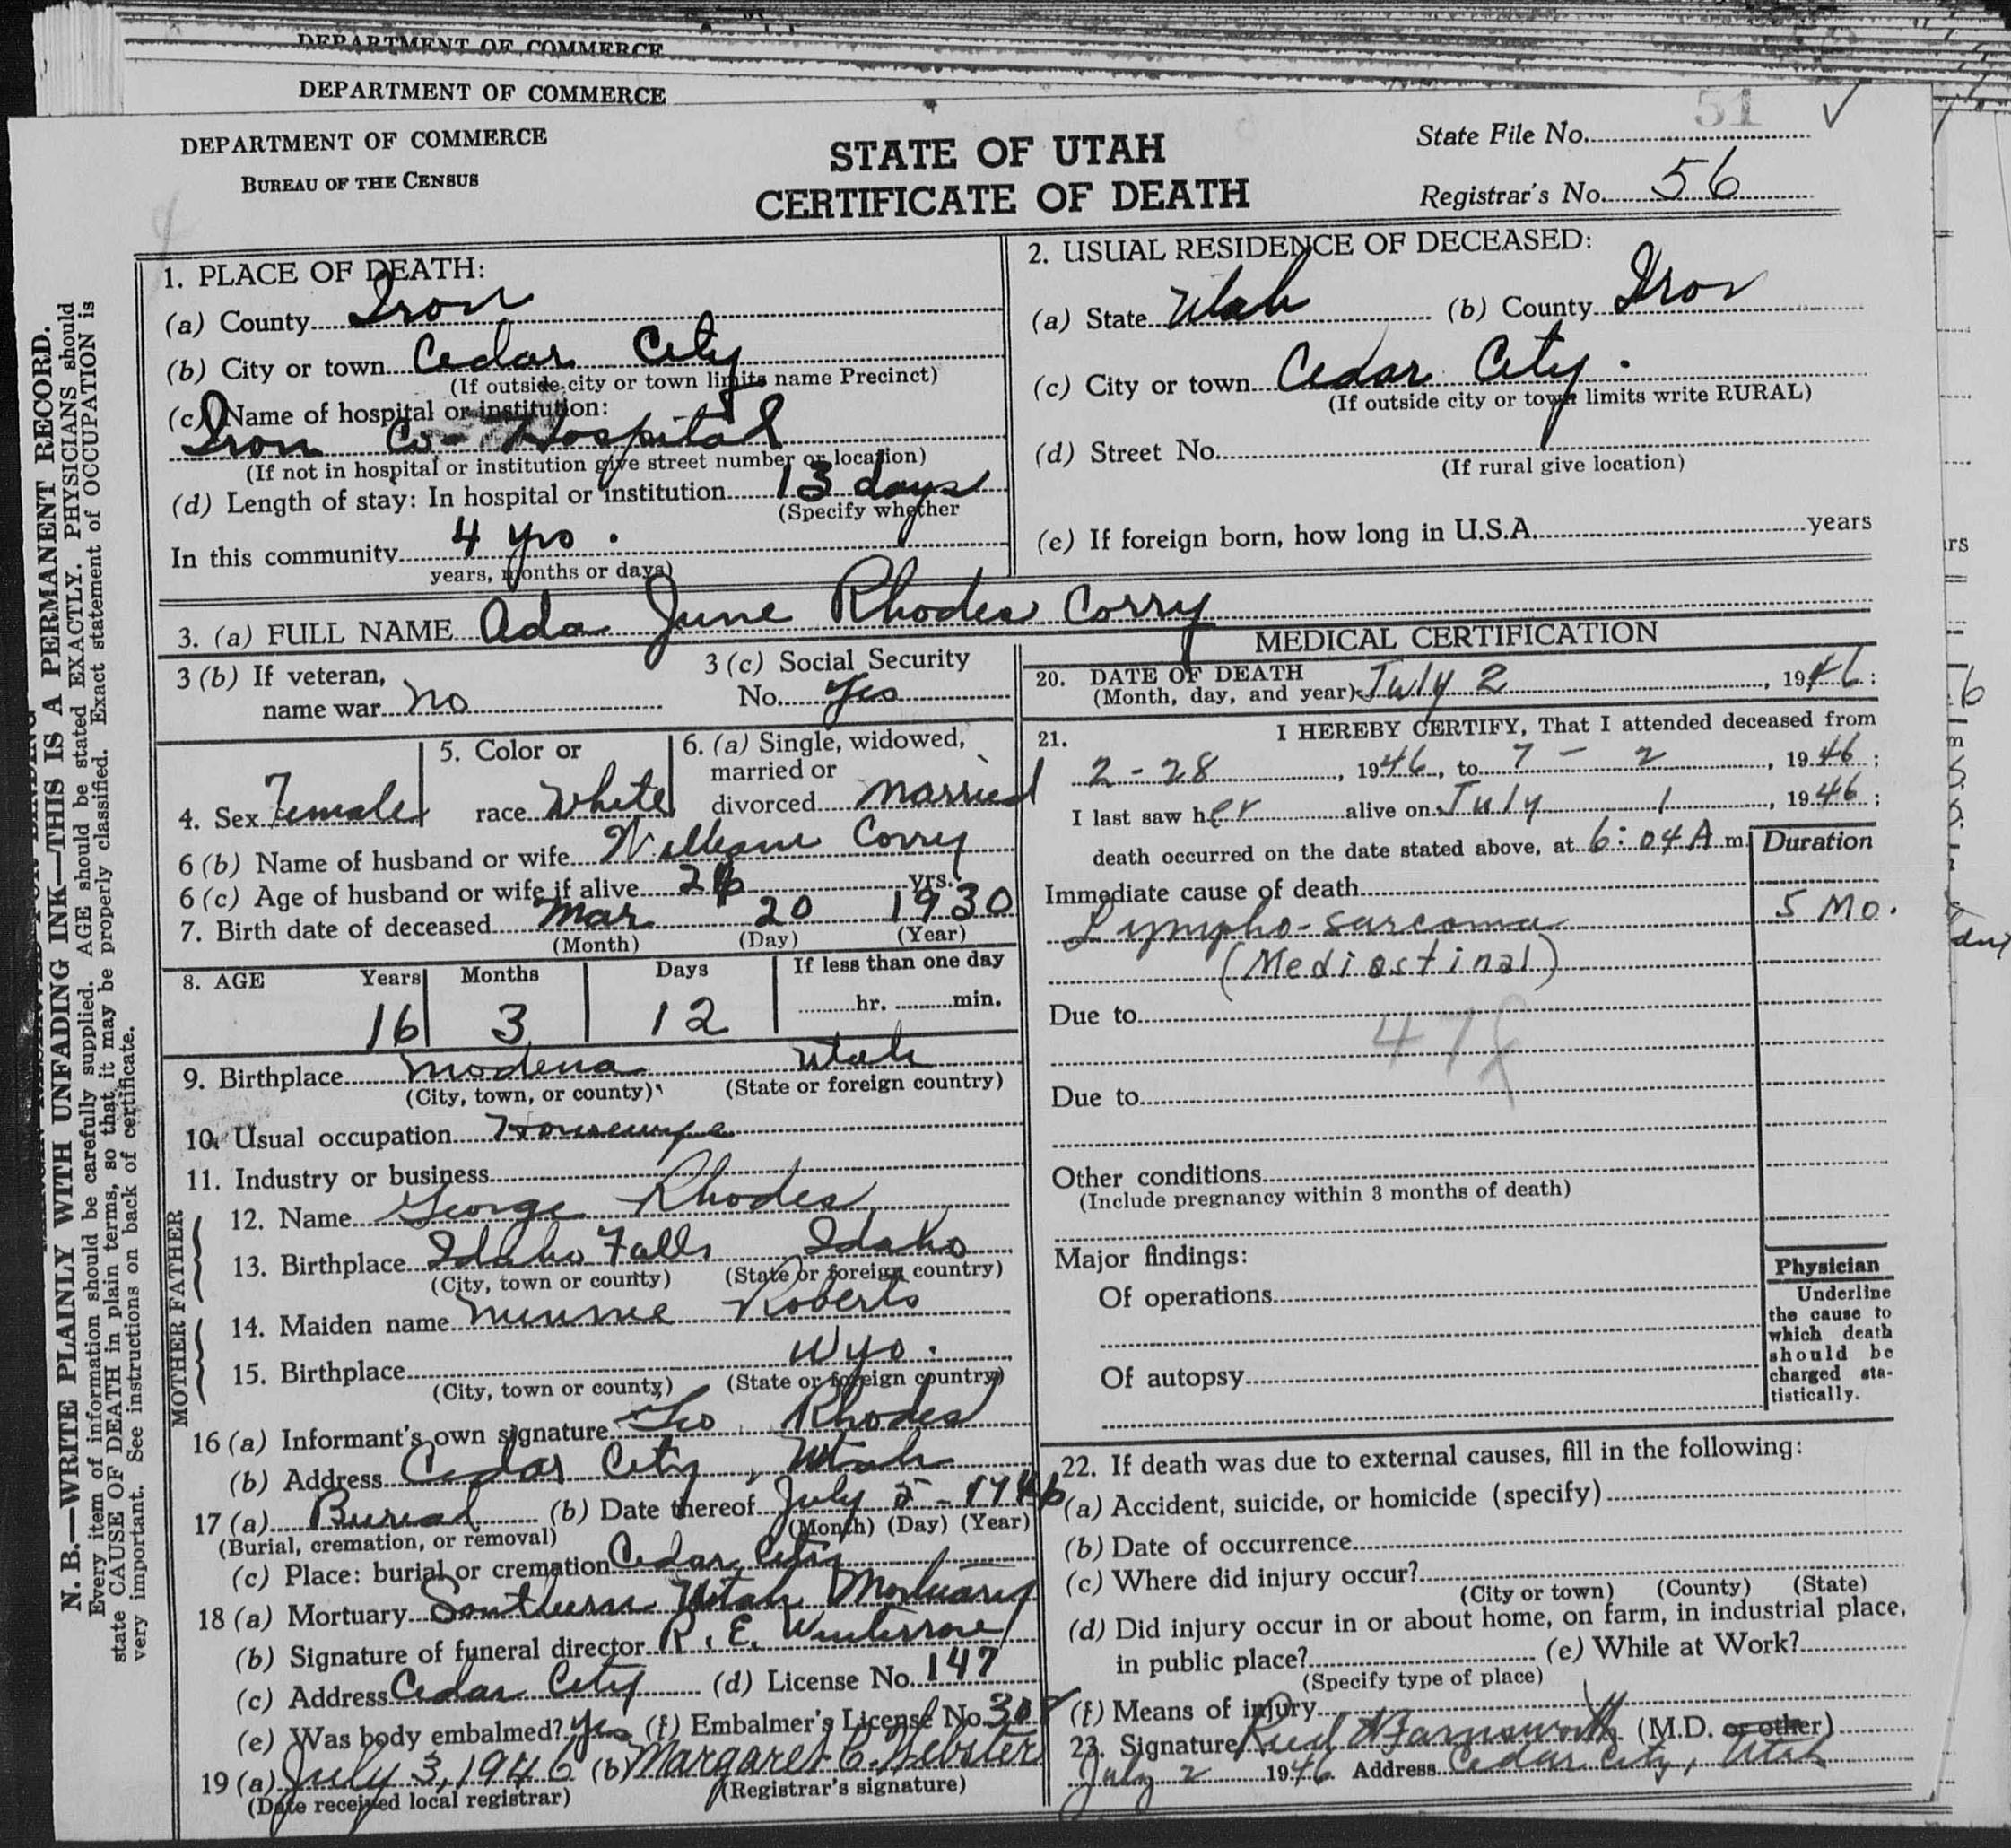 DEPARTMENT OF COMMERCE
DEPARTMENT OF COMMERCE
DEPARTMENT OF COMMERCE
BUREAU OF THE CENSUS
STATE OF UTAH
CERTIFICATE OF DEATH
State File No. 51
Registrar's No. 56
N. B.—WRITE PLAINLY WITH UNFADING INK—THIS IS A PERMANENT RECORD.
Every item of information should be carefully supplied. AGE should be stated EXACTLY. PHYSICIANS should
state CAUSE OF DEATH in plain terms, so that it may be properly classified. Exact statement of OCCUPATION is
very important. See instructions on back of certificate.
1. PLACE OF DEATH:
(a) County Iron
(b) City or town Cedar City
(If outside city or town limits name Precinct)
(c) Name of hospital or institution:
Iron Co- Hospital
(If not in hospital or institution give street number or location)
(d) Length of stay: In hospital or institution 13 days
(Specify whether
In this community 4 yrs.
years, months or days)
2. USUAL RESIDENCE OF DECEASED:
(a) State Utah (b) County Iron
(c) City or town Cedar City.
(If outside city or town limits write RURAL)
(d) Street No.
(If rural give location)
(e) If foreign born, how long in U.S.A. years
3. (a) FULL NAME Ada June Rhodes Corry
3 (b) If veteran,
name war No
3 (c) Social Security
No. Yes
4. Sex Female
5. Color or
race White
6. (a) Single, widowed,
married or
divorced married
6 (b) Name of husband or wife William Corry
6 (c) Age of husband or wife if alive yrs.
7. Birth date of deceased Mar 20 1930
(Month) (Day) (Year)
8. AGE Years Months Days If less than one day
16 3 12 hr. min.
9. Birthplace Modena Utah
(City, town, or county) (State or foreign country)
10. Usual occupation Housewife
11. Industry or business
FATHER
12. Name George Rhodes
13. Birthplace Idaho Falls Idaho
(City, town or county) (State or foreign country)
MOTHER
14. Maiden name Minnie Roberts
15. Birthplace Wyo.
(City, town or county) (State or foreign country)
16 (a) Informant's own signature Geo Rhodes
(b) Address Cedar City, Utah
17 (a) Burial (b) Date thereof July 5 - 1946
(Burial, cremation, or removal) (Month) (Day) (Year)
(c) Place: burial or cremation Cedar City
18 (a) Mortuary Southern Utah Mortuary
(b) Signature of funeral director R. E. Winterrose
(c) Address Cedar City (d) License No. 147
(e) Was body embalmed? Yes (f) Embalmer's License No.
19 (a) July 3, 1946 (b) Margaret C. Webster
(Date received local registrar) (Registrar's signature)
MEDICAL CERTIFICATION
20. DATE OF DEATH
(Month, day, and year) July 2, 1946;
21. I HEREBY CERTIFY, That I attended deceased from
2-28, 1946, to 7 - 2, 1946;
I last saw her alive on July 1, 1946;
death occurred on the date stated above, at 6:04 A m.
Duration
Immediate cause of death
Lympho-sarcoma 5 Mo.
(Mediastinal)
Due to
Due to
Other conditions
(Include pregnancy within 3 months of death)
Major findings:
Of operations
Of autopsy
Physician
Underline
the cause to
which death
should be
charged sta-
tistically.
22. If death was due to external causes, fill in the following:
(a) Accident, suicide, or homicide (specify)
(b) Date of occurrence
(c) Where did injury occur?
(City or town) (County) (State)
(d) Did injury occur in or about home, on farm, in industrial place,
in public place? (e) While at Work?
(Specify type of place)
(f) Means of injury
23. Signature Reed W Farnsworth (M.D. or other)
July 2 1946. Address Cedar City, Utah